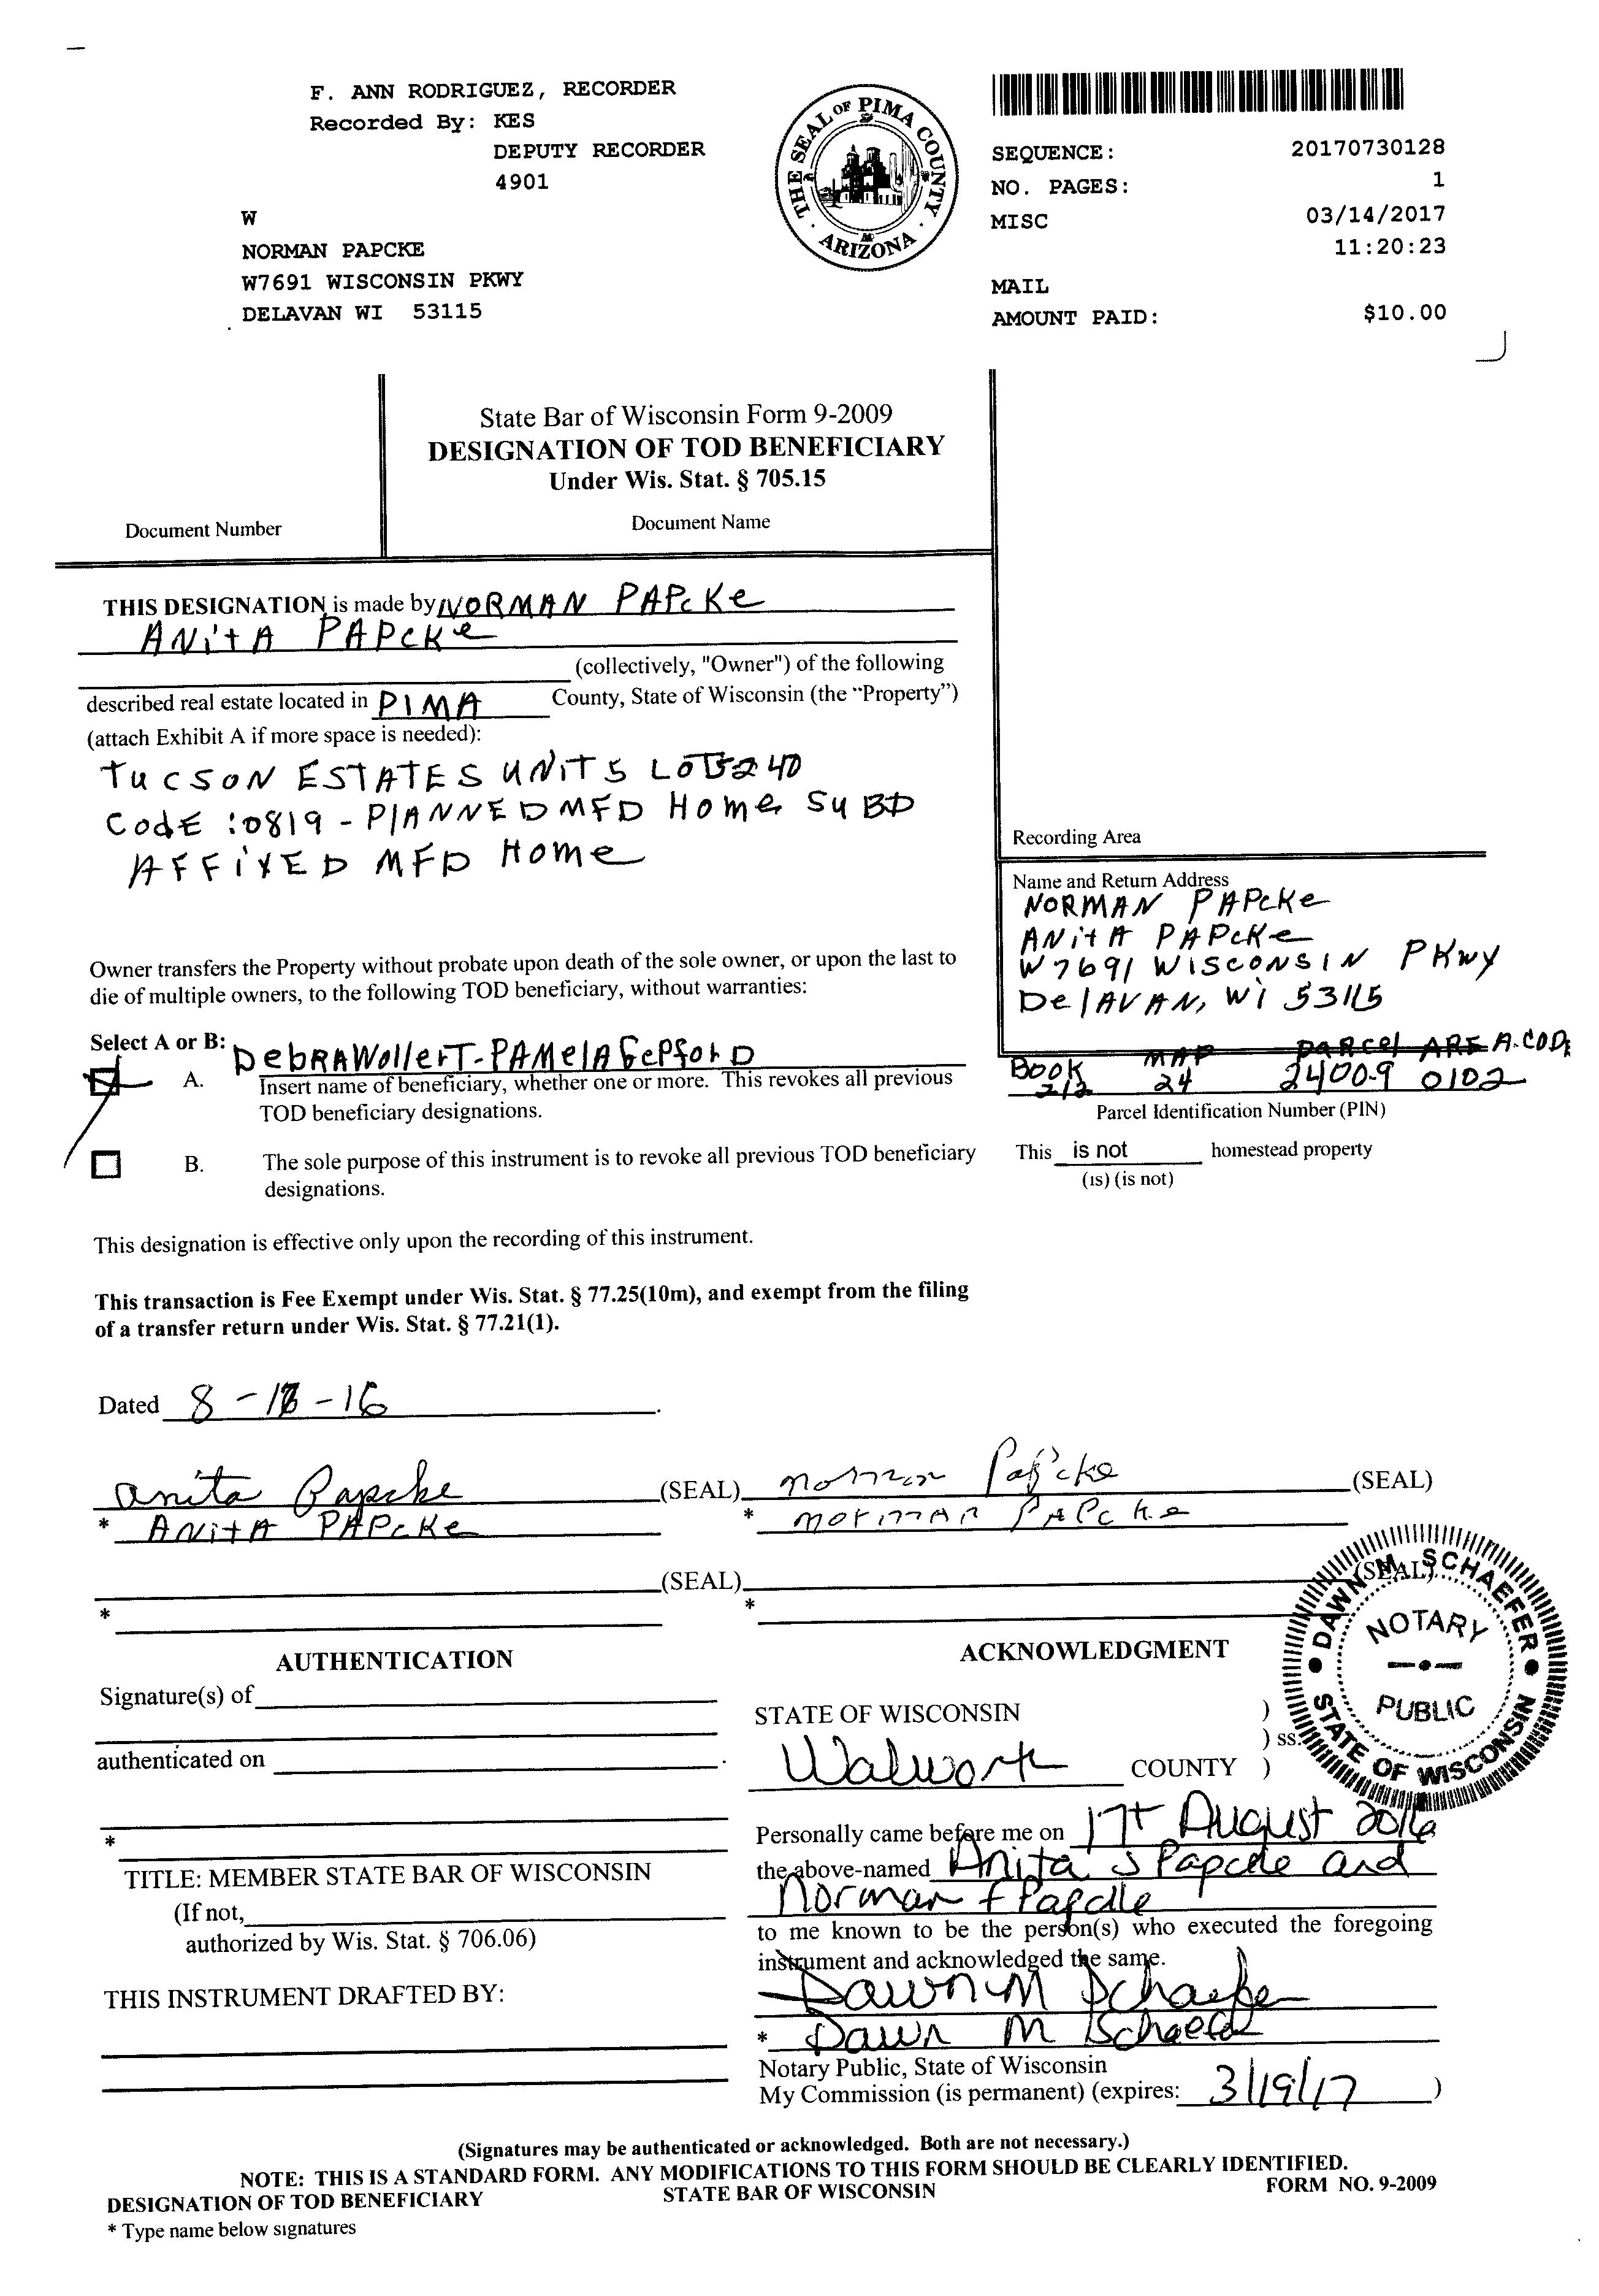 F. ANN RODRIGUEZ, RECORDER
Recorded By: KES
DEPUTY RECORDER
4901
W
NORMAN PAPCKE
W7691 WISCONSIN PKWY
DELAVAN WI 53115
THE SEAL OF PIMA COUNTY
ARIZONA
SEQUENCE: 20170730128
NO. PAGES: 1
MISC 03/14/2017
11:20:23
MAIL
AMOUNT PAID: $10.00
State Bar of Wisconsin Form 9-2009
DESIGNATION OF TOD BENEFICIARY
Under Wis. Stat. § 705.15
Document Number
Document Name
THIS DESIGNATION is made by NORMAN PAPcKe
ANitA PAPcKe
(collectively, "Owner") of the following
described real estate located in PIMA County, State of Wisconsin (the "Property")
(attach Exhibit A if more space is needed):
TUCSON ESTATES UNIT 5 240
CodE :0819 - PlANNED MFD Home SUBD
AFFIXED MFD Home
Recording Area
Name and Return Address
NORMAN PAPcKe
ANitA PAPcKe
W7691 WISCONSIN PKwy
DelAVAN, Wi 53115
Owner transfers the Property without probate upon death of the sole owner, or upon the last to
die of multiple owners, to the following TOD beneficiary, without warranties:
Select A or B:
DebRA WollerT - PAMelA GePfoLD
A. Insert name of beneficiary, whether one or more. This revokes all previous
TOD beneficiary designations.
BOOK MAP PARcel AREA.COD
212 24 2400-9 0102
Parcel Identification Number (PIN)
B. The sole purpose of this instrument is to revoke all previous TOD beneficiary
designations.
This is not homestead property
(is) (is not)
This designation is effective only upon the recording of this instrument.
This transaction is Fee Exempt under Wis. Stat. § 77.25(10m), and exempt from the filing
of a transfer return under Wis. Stat. § 77.21(1).
Dated 8-17-16
anita Papcke (SEAL) norman Papcke (SEAL)
* ANitA PAPcKe * norman PAPcke
(SEAL) (SEAL)
* *
DAWN M. SCHAEFER
NOTARY
PUBLIC
STATE OF WISCONSIN
AUTHENTICATION
Signature(s) of
authenticated on
*
TITLE: MEMBER STATE BAR OF WISCONSIN
(If not,
authorized by Wis. Stat. § 706.06)
THIS INSTRUMENT DRAFTED BY:
ACKNOWLEDGMENT
STATE OF WISCONSIN )
) ss.
Walworth COUNTY )
Personally came before me on 17th August 2016
the above-named Anita J Papcke and
Norman F Papcke
to me known to be the person(s) who executed the foregoing
instrument and acknowledged the same.
Dawn M Schaefer
* Dawn M Schaefer
Notary Public, State of Wisconsin
My Commission (is permanent) (expires: 3/19/17 )
(Signatures may be authenticated or acknowledged. Both are not necessary.)
NOTE: THIS IS A STANDARD FORM. ANY MODIFICATIONS TO THIS FORM SHOULD BE CLEARLY IDENTIFIED.
DESIGNATION OF TOD BENEFICIARY STATE BAR OF WISCONSIN FORM NO. 9-2009
* Type name below signatures